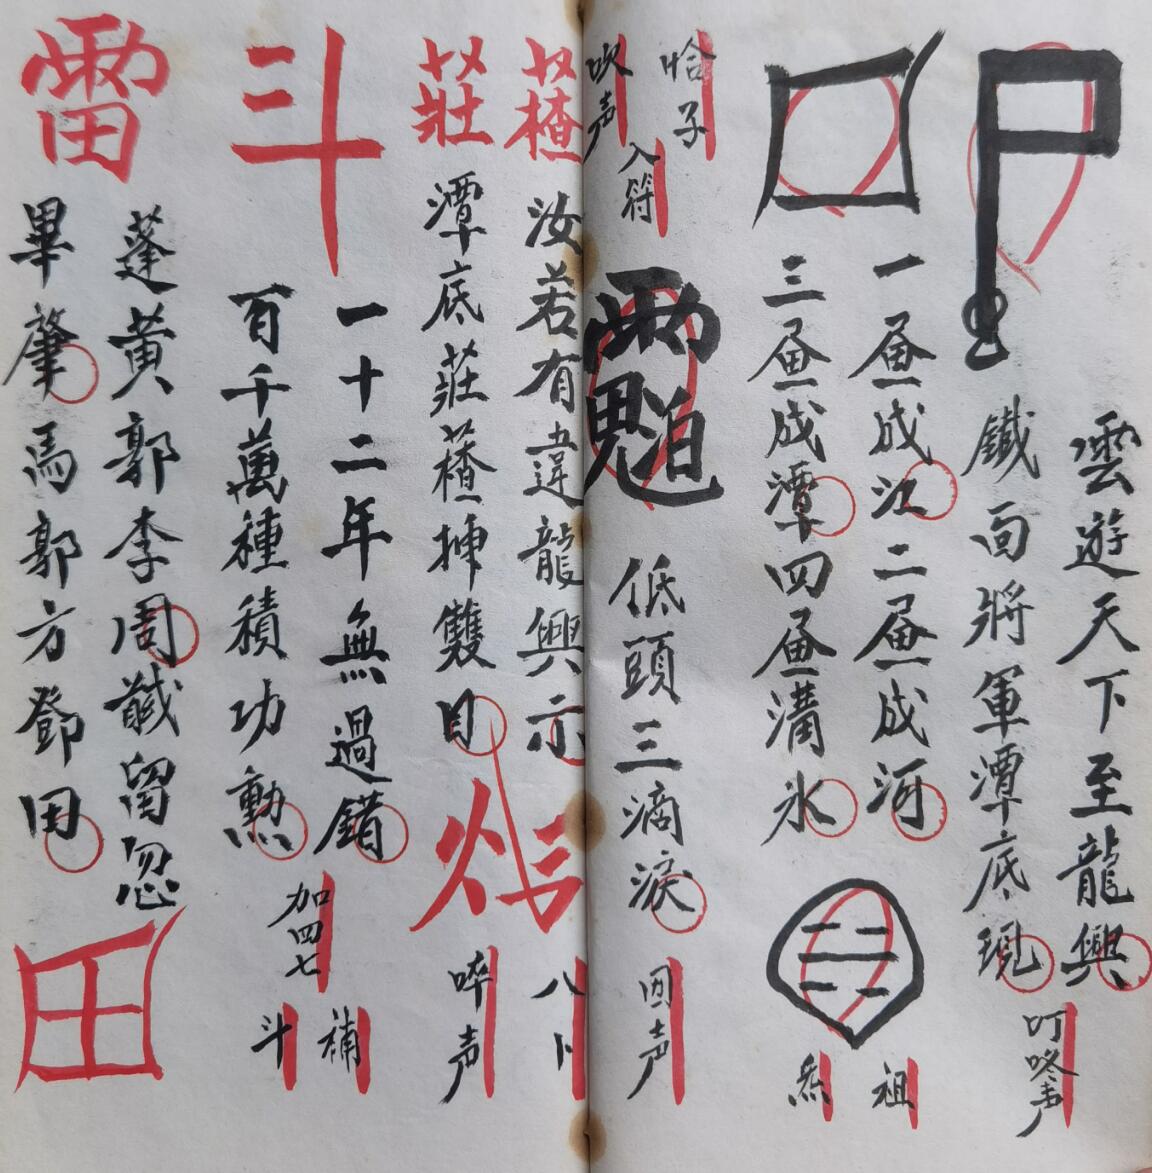 尸
雲遊天下至龍興
鐵面將軍潭底現
叮咚声
口
一畫成江二畫成河
三畫成潭四畫溝水
祖
炁
恰子
吹声
入符
低頭三滴淚
回声
䕢
汝若有違龍興示
莊
潭底莊䕢抻雙目
八卜
啐声
斗
一十二年無過錯
百千萬種積功勲
加四七
補
斗
雷
蓬黄郭李周 留忽
畢肇馬郭方鄧田
田